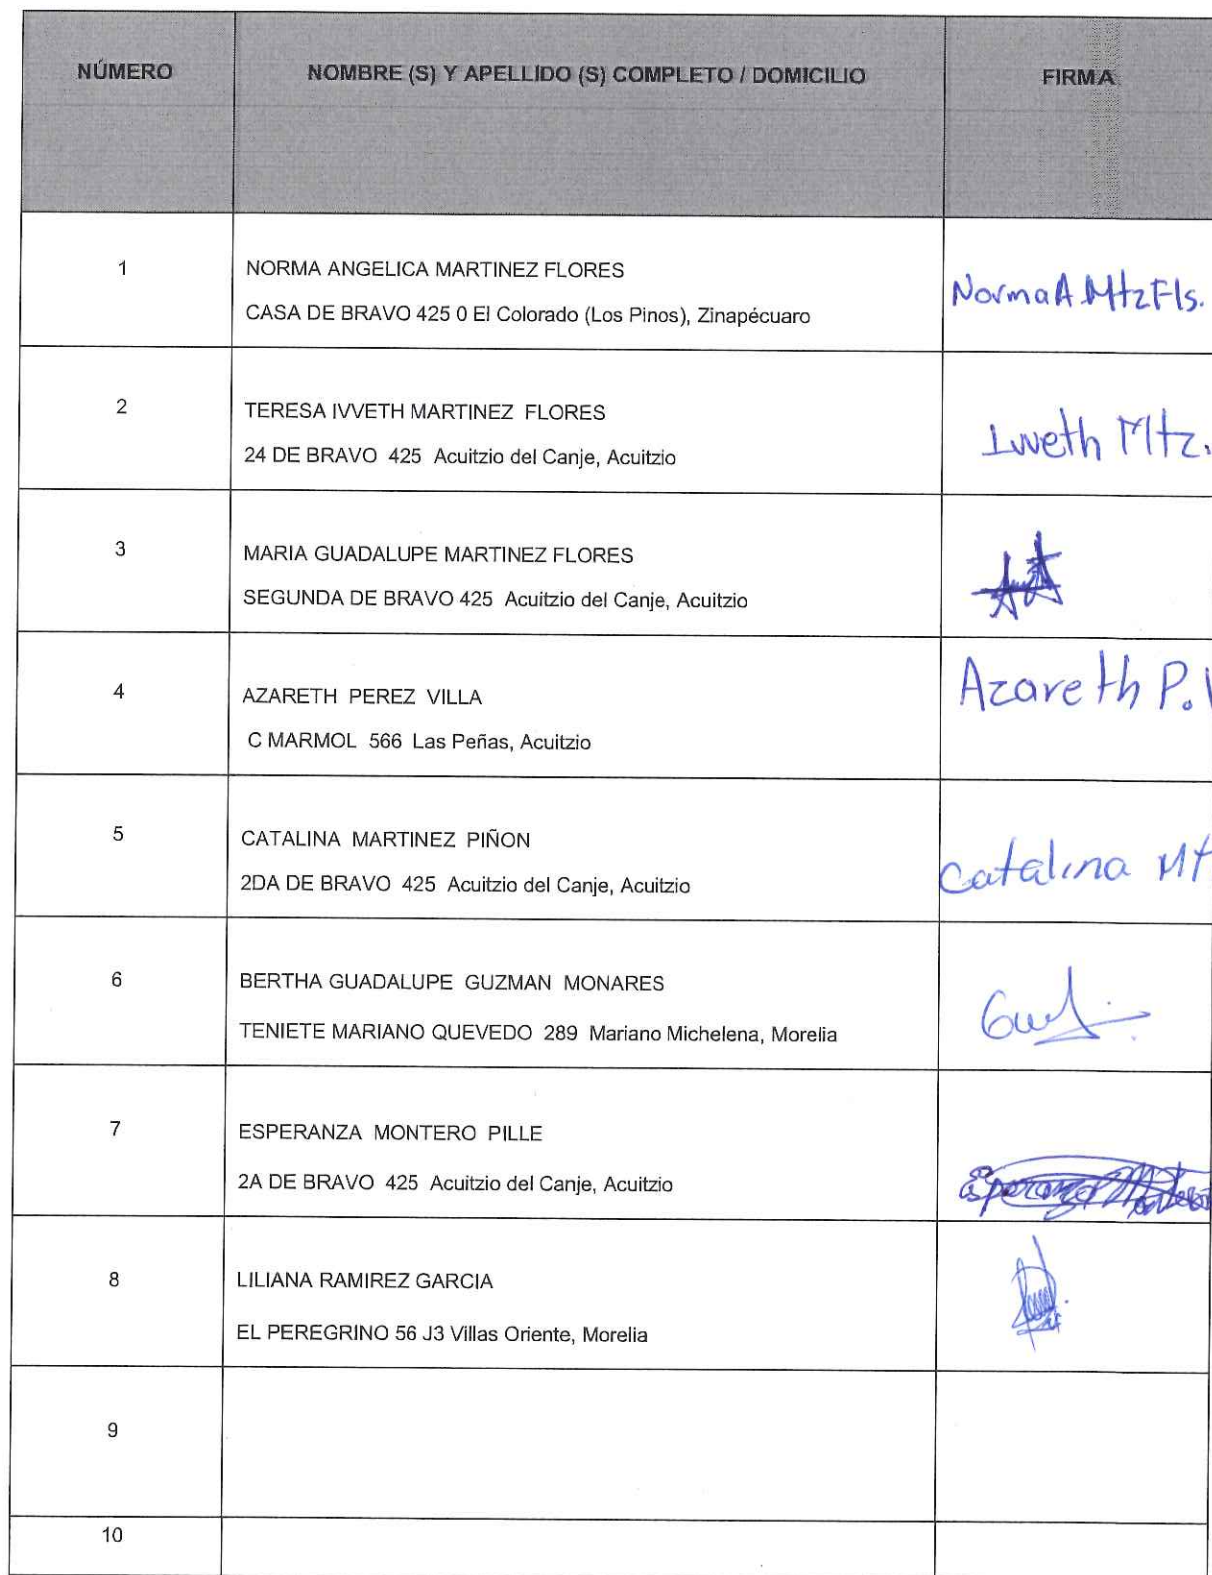 NÚMERO NOMBRE (S) Y APELLIDO (S) COMPLETO / DOMICILIO FIRMA
1 NORMA ANGELICA MARTINEZ FLORES
CASA DE BRAVO 425 0 El Colorado (Los Pinos), Zinapécuaro
Norma A Mtz Fls.
2 TERESA IVVETH MARTINEZ FLORES
24 DE BRAVO 425 Acuitzio del Canje, Acuitzio
Ivveth Mtz.
3 MARIA GUADALUPE MARTINEZ FLORES
SEGUNDA DE BRAVO 425 Acuitzio del Canje, Acuitzio
4 AZARETH PEREZ VILLA
C MARMOL 566 Las Peñas, Acuitzio
Azareth P.
5 CATALINA MARTINEZ PIÑON
2DA DE BRAVO 425 Acuitzio del Canje, Acuitzio
Catalina Mt
6 BERTHA GUADALUPE GUZMAN MONARES
TENIETE MARIANO QUEVEDO 289 Mariano Michelena, Morelia
7 ESPERANZA MONTERO PILLE
2A DE BRAVO 425 Acuitzio del Canje, Acuitzio
Esperanza Montero
8 LILIANA RAMIREZ GARCIA
EL PEREGRINO 56 J3 Villas Oriente, Morelia
9
10